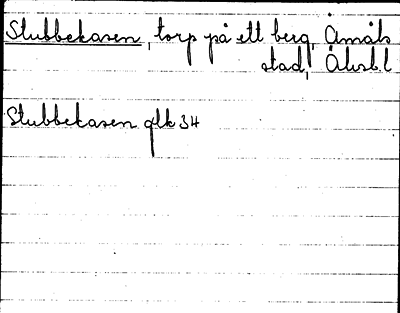 Stubbekasen, torp på ett berg, Åmåls
stad, Älvsbl
Stubbekasen glk 34